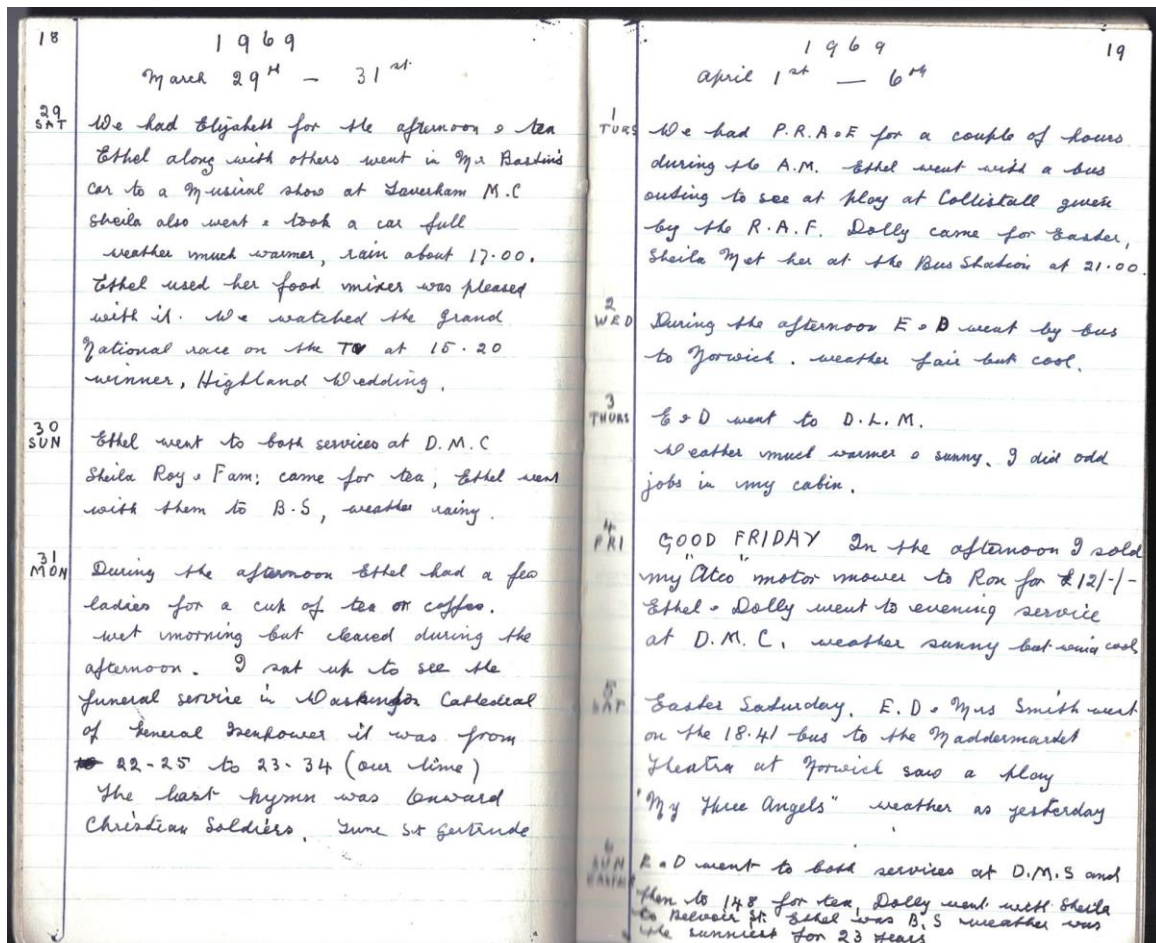 18
1969
March 29th - 31st
29
SAT
We had Elizabeth for the afternoon & tea
Ethel along with others went in Mr Bastin's
car to a Musical show at Taverham M.C
Sheila also went & took a car full
weather much warmer, rain about 17.00.
Ethel used her food mixer was pleased
with it. We watched the Grand
National race on the TV at 15.20
winner, Highland Wedding.
30
SUN
Ethel went to both services at D.M.C
Sheila Roy & Fam: came for tea, Ethel went
with them to B.S, weather rainy.
31
MON
During the afternoon Ethel had a few
ladies for a cup of tea or coffee.
wet morning but cleared during the
afternoon. I sat up to see the
funeral service in Washington Cathedral
of General Isenhower it was from
22-25 to 23-34 (our time)
The last hymn was Onward
Christian Soldiers. Tune St Gertrude
1969
19
April 1st - 6th
1
TUES
We had P.R.A & E for a couple of hours
during the A.M. Ethel went with a bus
outing to see at play at Collistall given
by the R.A.F. Dolly came for Easter,
Sheila Met her at the Bus Station at 21.00.
2
WED
During the afternoon E & D went by bus
to Norwich. weather fair but cool.
3
THURS
E & D went to D.L.M.
Weather much warmer & sunny. I did odd
jobs in my cabin.
4
FRI
GOOD FRIDAY In the afternoon I sold
my "Atco" motor mower to Ron for £12/-/-
Ethel & Dolly went to evening service
at D.M.C, weather sunny but wind cool
5
SAT
Easter Saturday. E. D & Mrs Smith went
on the 18.41 bus to the Maddermarket
Theatre at Norwich saw a play
"My Three Angels" weather as yesterday
6
SUN
EASTER
E & D went to both services at D.M.S and
then to 148 for tea, Dolly went with Sheila
to Belvoir St. Ethel was B.S weather was
the sunniest for 23 years